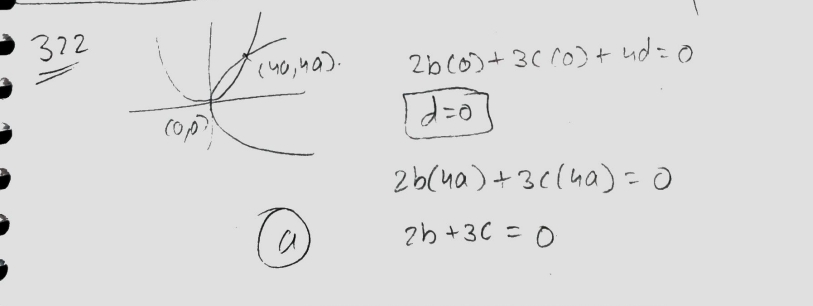 322
(4a,4a).
(0,0)
2b(0)+3c(0)+4d=0
d=0
2b(4a)+3c(4a)=0
2b+3c=0
a